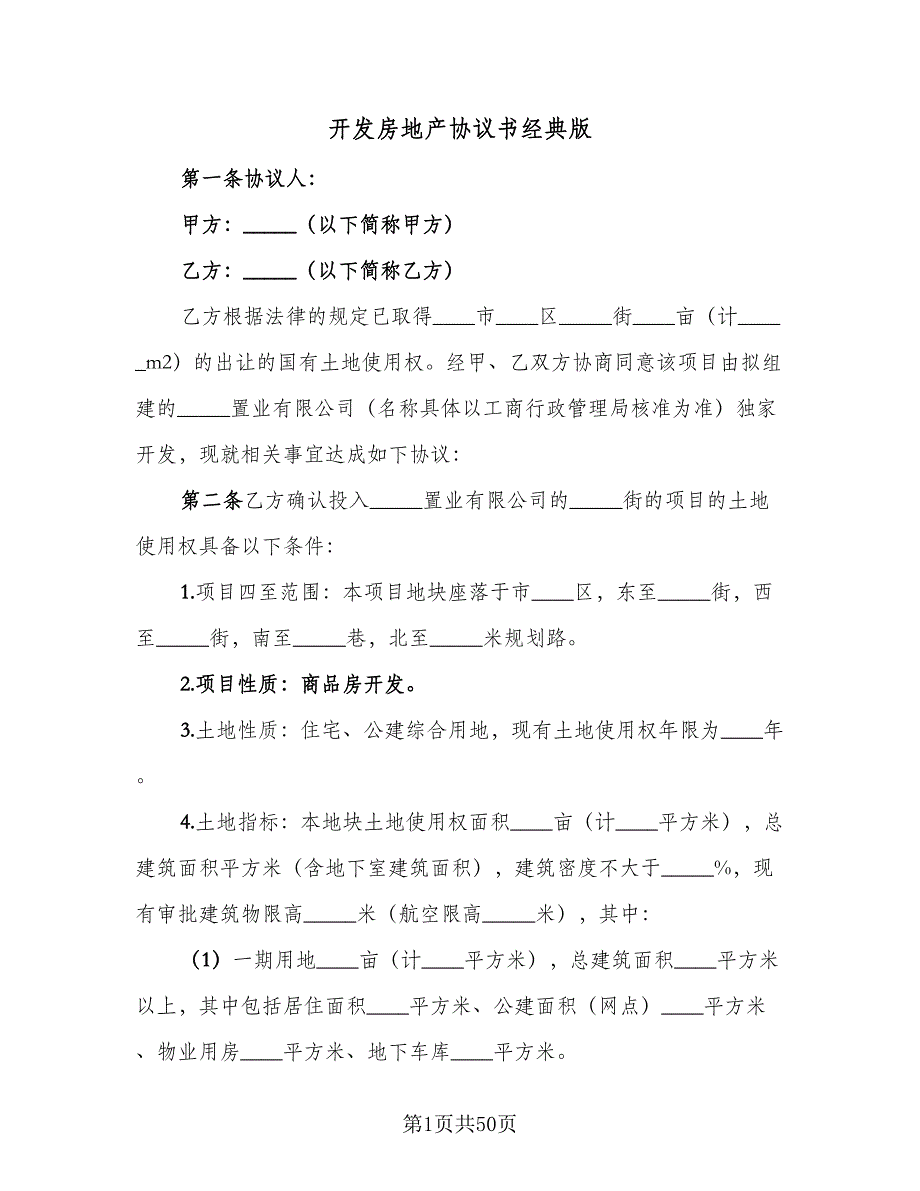 开发房地产协议书经典版
第一条协议人：
甲方：_____（以下简称甲方）
乙方：_____（以下简称乙方）
乙方根据法律的规定已取得____市____区_____街____亩（计____
_m2）的出让的国有土地使用权。经甲、乙双方协商同意该项目由拟组
建的_____置业有限公司（名称具体以工商行政管理局核准为准）独家
开发，现就相关事宜达成如下协议：
第二条乙方确认投入_____置业有限公司的_____街的项目的土地
使用权具备以下条件：
1.项目四至范围：本项目地块座落于市____区，东至_____街，西
至_____街，南至_____巷，北至_____米规划路。
2.项目性质：商品房开发。
3.土地性质：住宅、公建综合用地，现有土地使用权年限为____年
。
4.土地指标：本地块土地使用权面积____亩（计____平方米），总
建筑面积平方米（含地下室建筑面积），建筑密度不大于_____%，现
有审批建筑物限高_____米（航空限高_____米），其中：
（1）一期用地____亩（计____平方米），总建筑面积____平方米
以上，其中包括居住面积____平方米、公建面积（网点）____平方米
、物业用房____平方米、地下车库____平方米。
第1页共50页